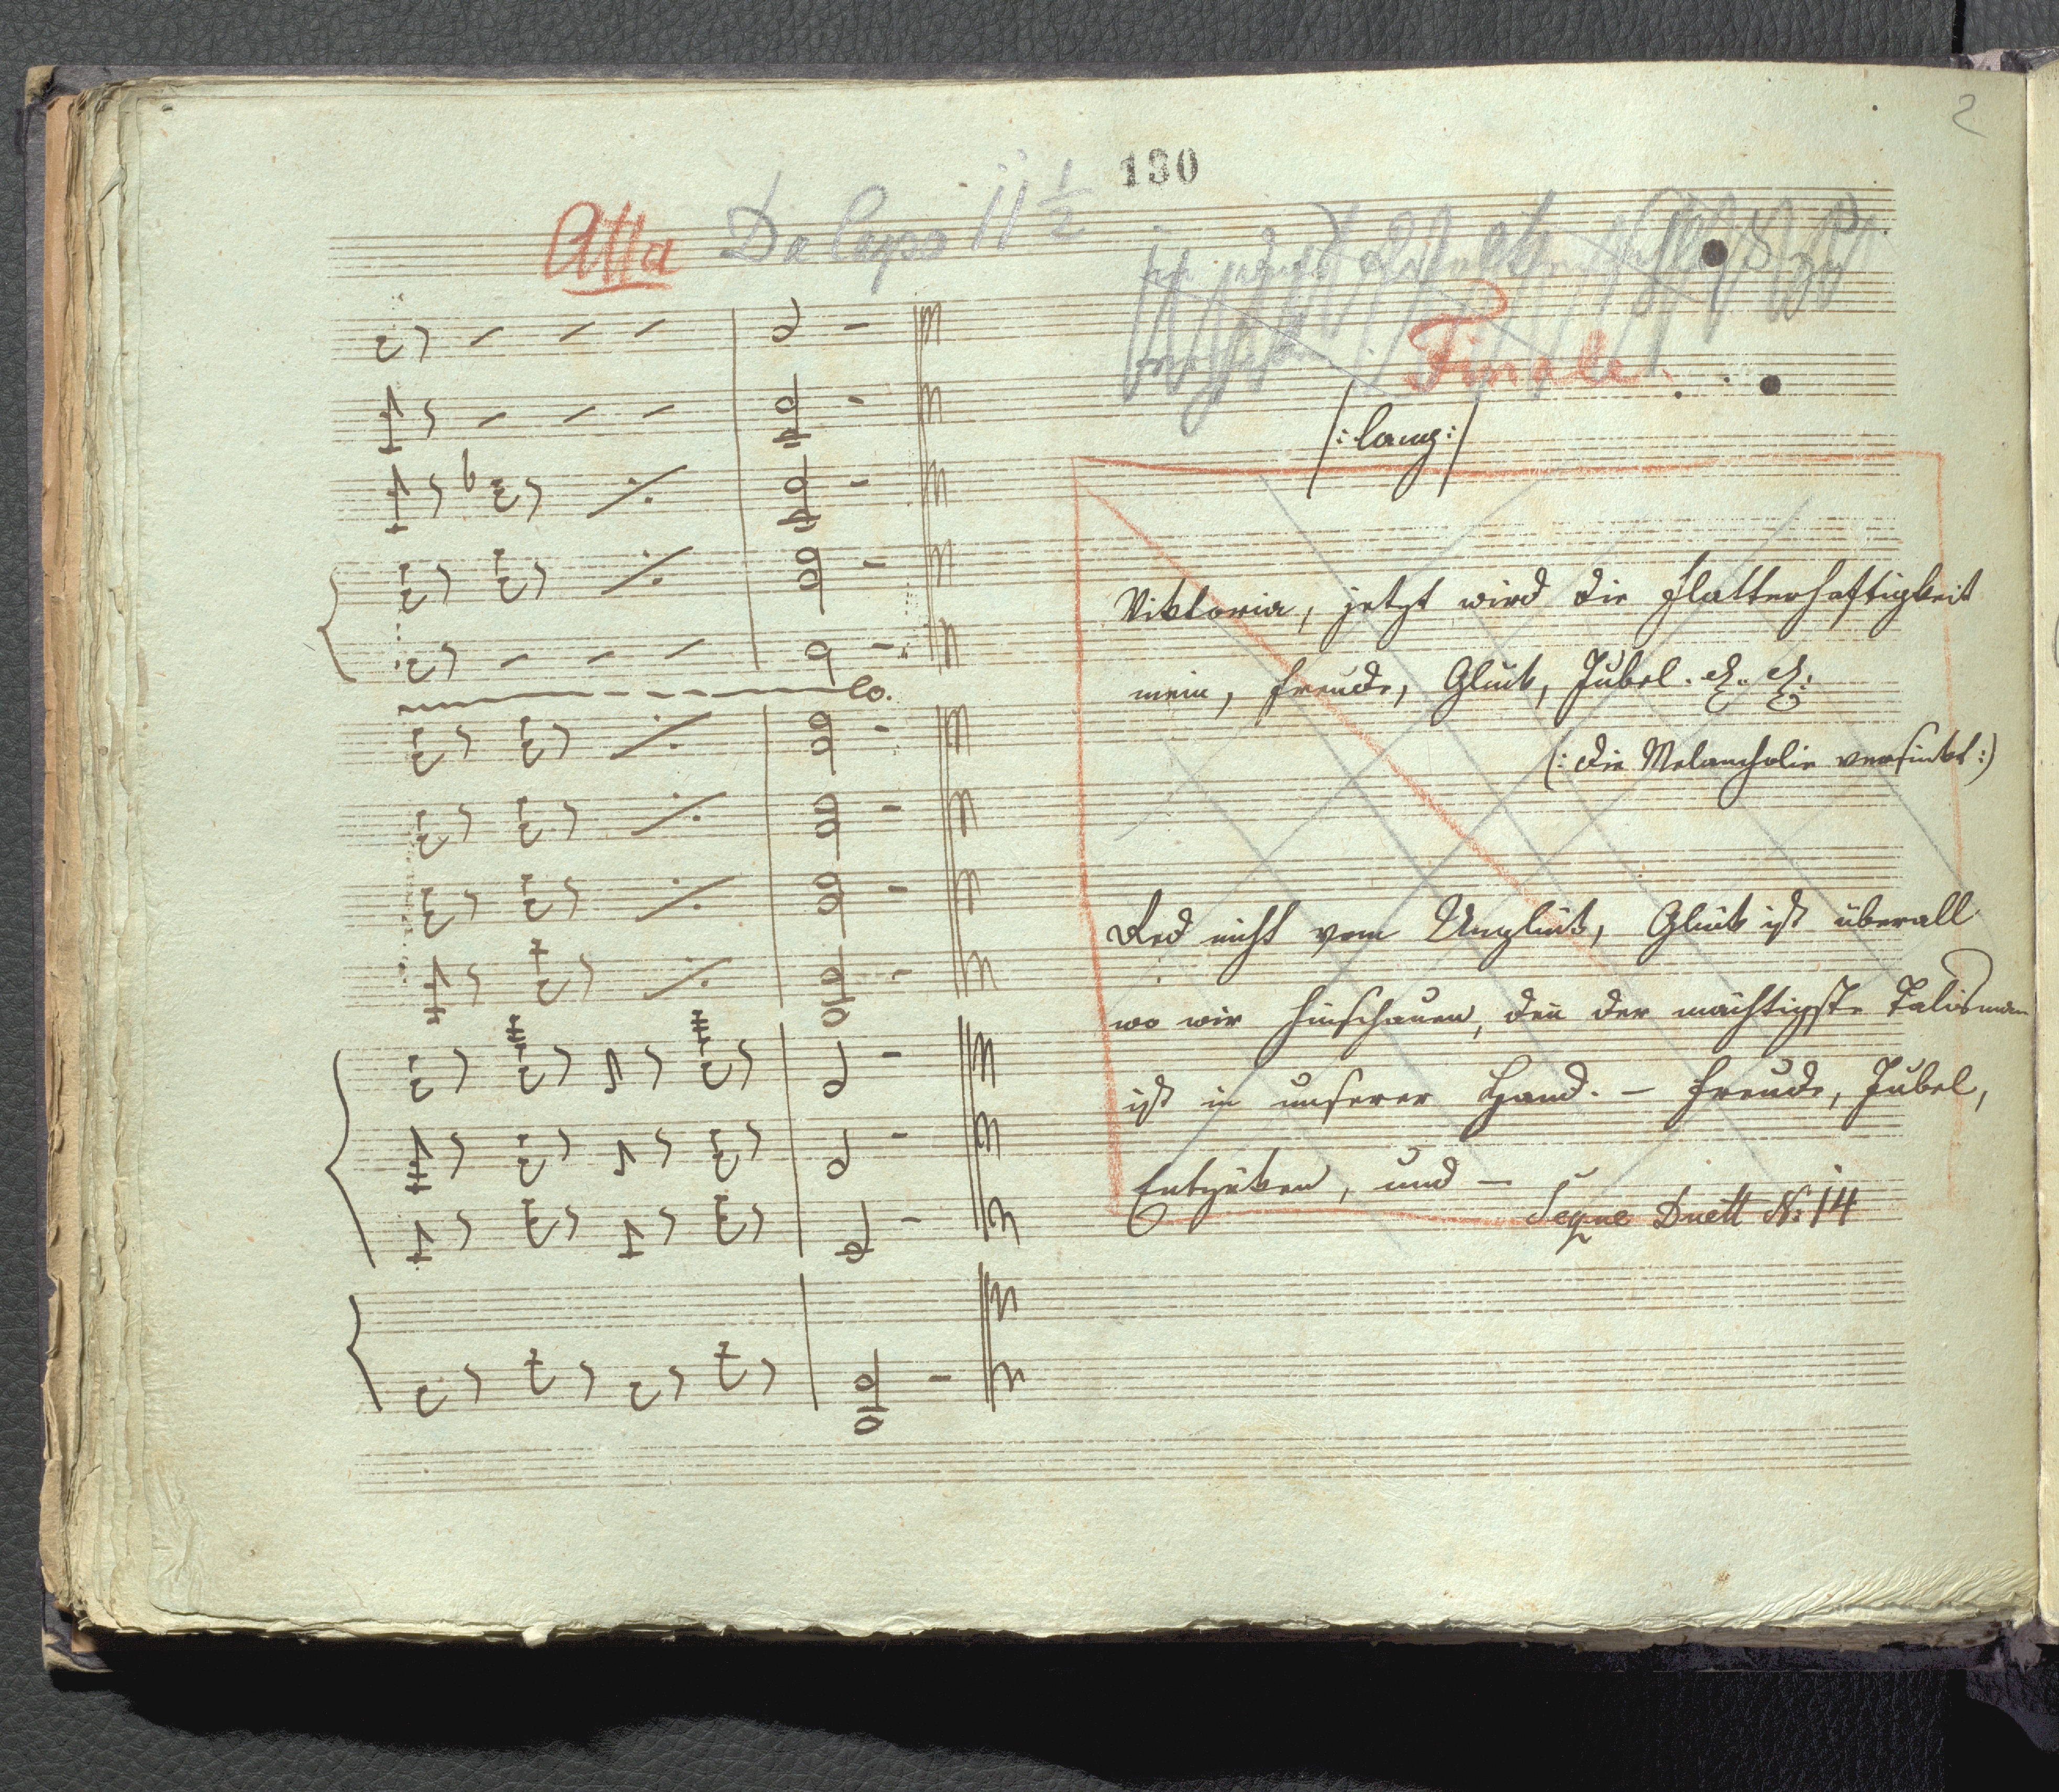 2
130
Atta Da Capo 11 1/2
Finale
/: lang :/
Viktoria, jetzt wird die Flatterhaftigkeit
mein, Freude, Glück, Jubel. &. &.
(: die Melancholie versinkt :)
Red nicht vom Unglück, Glück ist überall
wo wir hinschauen, deñ der mächtigste Talisman
ist in unserer Hand. – Freude, Jubel,
Entzüken, und –
Segue Duett No: 14